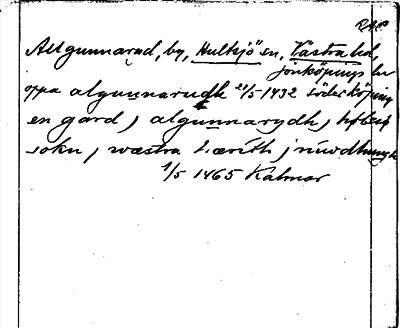 Allgunnarad, by, Hultsjö sn, Västra hd,
Jönköpings län
oppa algunnarudh 21/5 1432 Söderköping
en gard j algunnarydh j
sokn j wæstra hærith j niwdhungh
1/5 1465 Kalmar